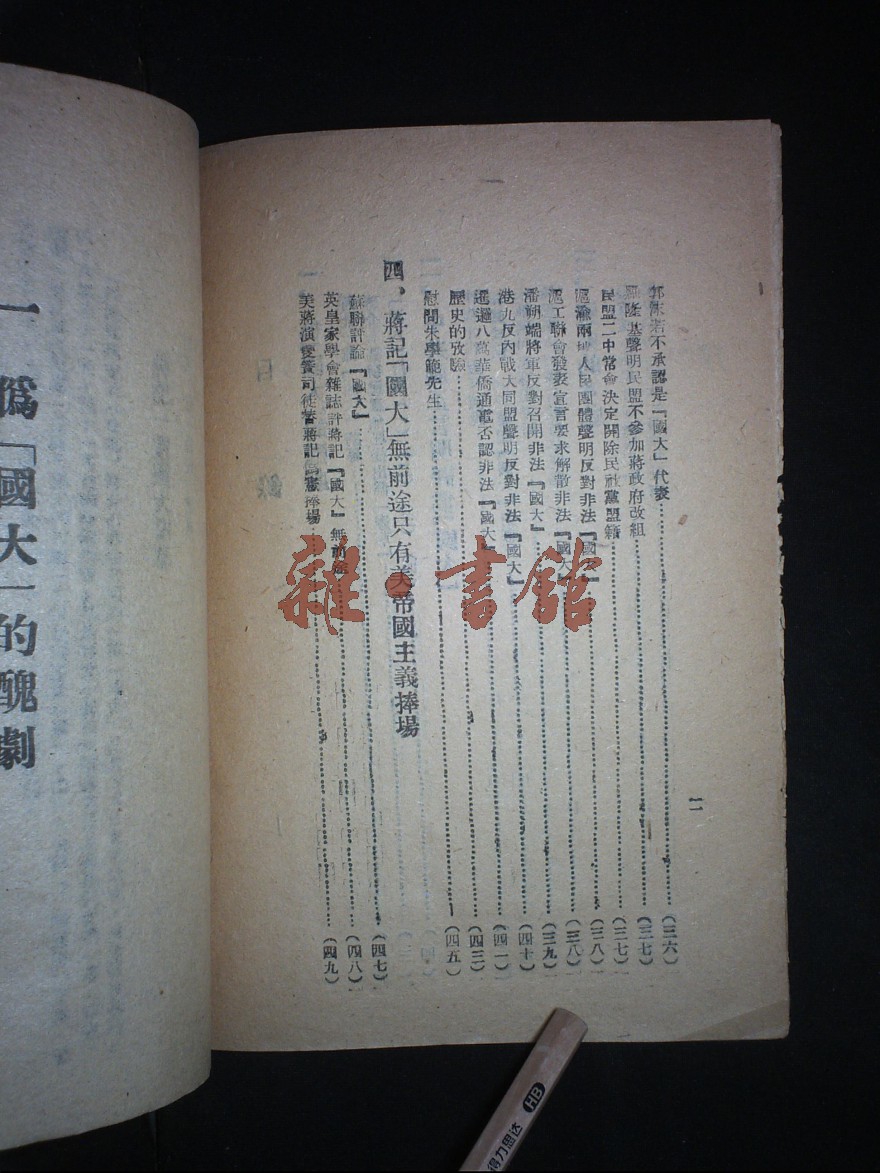 二
郭沫若不承認是『國大』代表……(三六)
羅隆基聲明民盟不參加蔣政府改組……(三七)
民盟二中常會決定開除民社黨盟籍……(三七)
滬渝兩地人民團體聲明反對非法『國大』……(三八)
滬工聯會發表宣言要求解散非法『國大』……(三八)
潘朔端將軍反對召開非法『國大』……(三九)
港九反內戰大同盟聲明反對非法『國大』……(四十)
暹邏八萬華僑通電否認非法『國大』……(四一)
歷史的攷驗……(四三)
慰問朱學範先生……(四五)
四、蔣記「國大」無前途只有美帝國主義捧場
蘇聯評論『國大』……(四七)
英皇家學會雜誌評蔣記『國大』無前途……(四八)
美蔣演雙簧司徒替蔣記僞憲捧場……(四九)
一 僞「國大」的醜劇
雜·書館
得力思达 HB